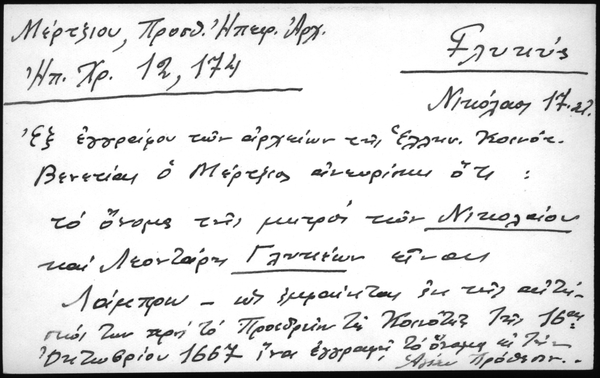 Μέρτζιου, Προσθ. Ἠπειρ. Ἀρχ.
Ἠπ. Χρ. 12, 174
Γλυκύς
Νικόλαος 17. αἰ.
Ἐξ ἐγγράφου τῶν ἀρχείων τῆς Ἑλλην. Κοινότ.
Βενετίας ὁ Μέρτζιος ἀνευρίσκει ὅτι :
τὸ ὄνομα τῆς μητρὸς τῶν Νικολάου
καὶ Λεοντάρη Γλυκέων εἶναι
Λάμπρω – ὡς ἐμφαίνεται ἐκ τῆς αἰτή-
σεώς των πρὸς τὸ Προεδρεῖον τῆς Κοινότητος τῆς 16ης
Ὀκτωβρίου 1667 ἵνα ἐγγραφῇ τὸ ὄνομα εἰς τὴν
Ἁγίαν Πρόθεσιν.-